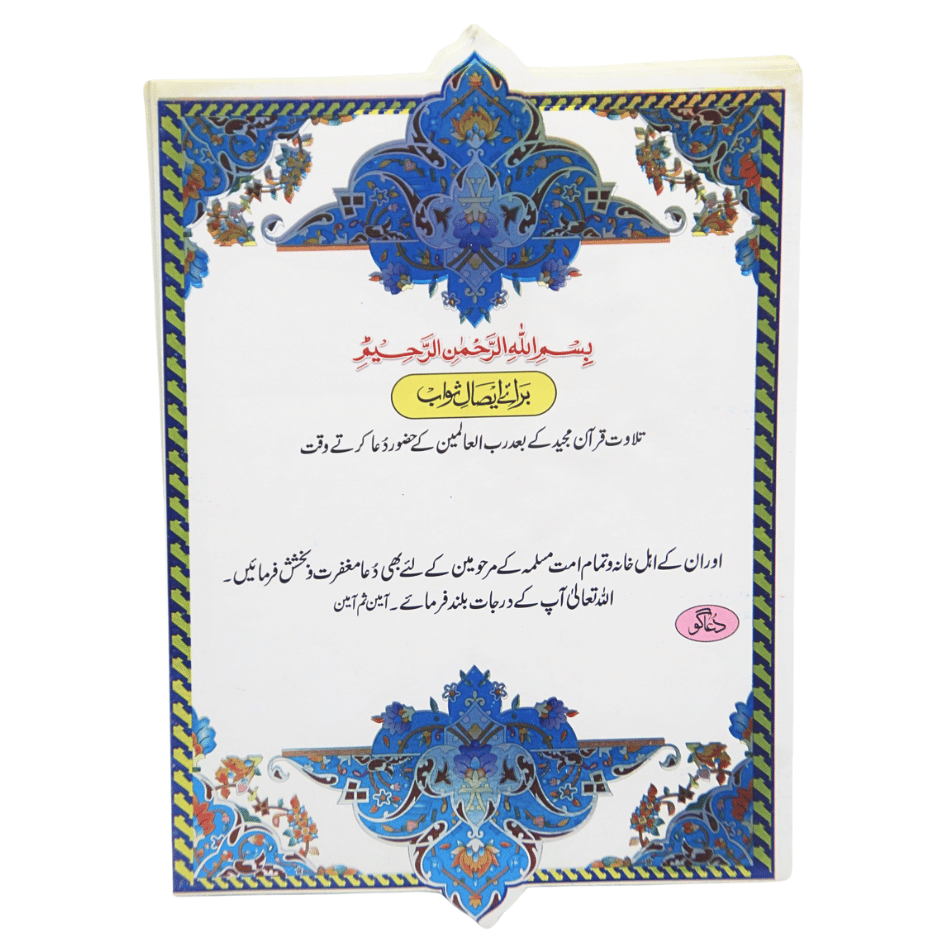 بِسْمِ اللّٰهِ الرَّحْمٰنِ الرَّحِيْمِ
برائے ایصالِ ثواب
تلاوت قرآن مجید کے بعد رب العالمین کے حضور دُعا کرتے وقت
اور ان کے اہل خانہ و تمام امت مسلمہ کے مرحومین کے لئے بھی دُعا مغفرت و بخشش فرمائیں۔
اللہ تعالیٰ آپ کے درجات بلند فرمائے۔ آمین ثم آمین
دُعا گو